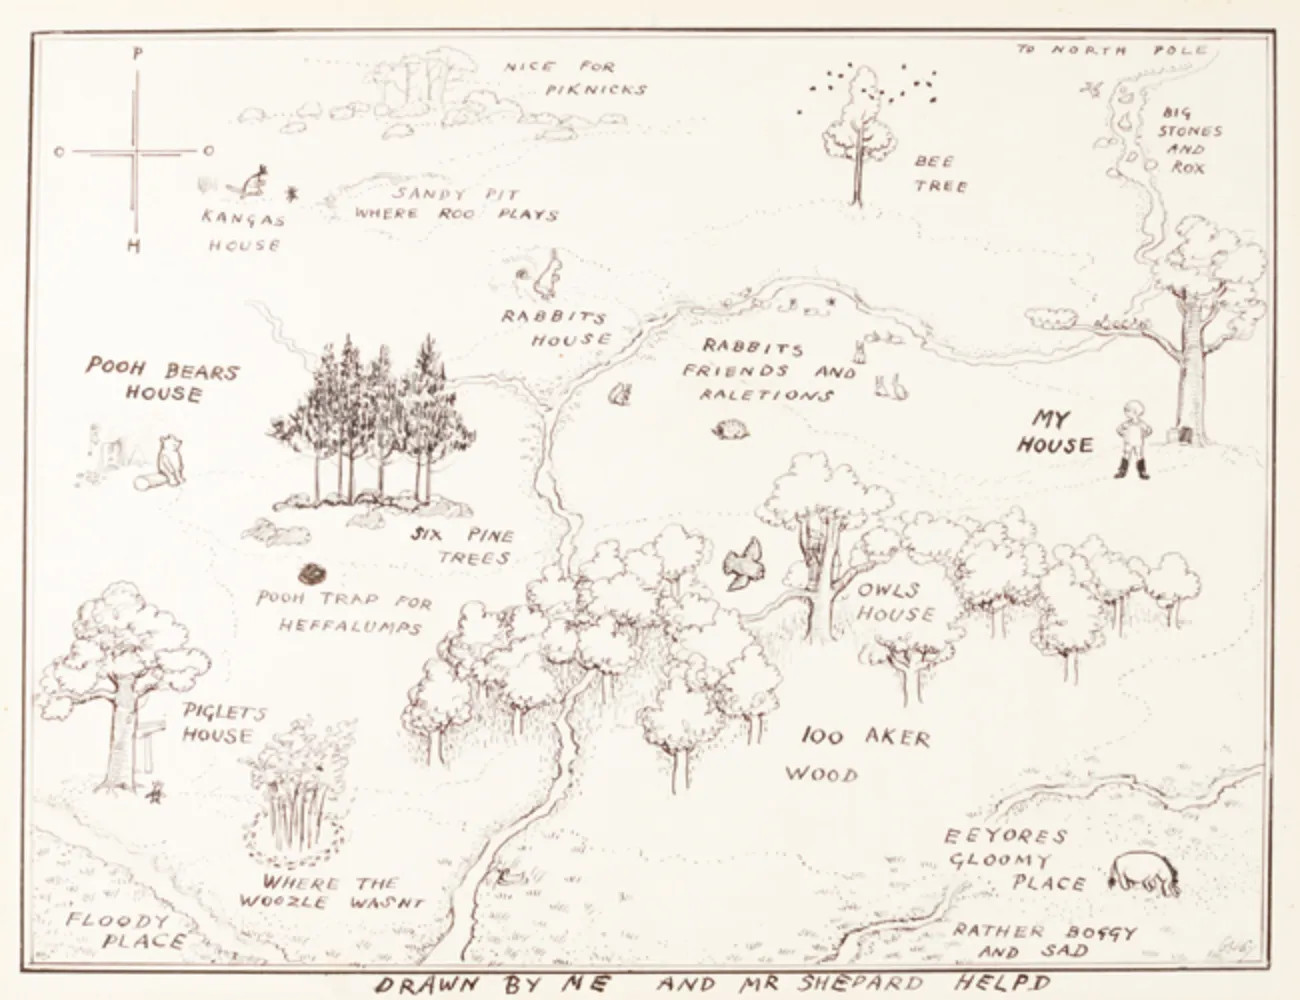 P
O
O
H
NICE FOR
PIKNICKS
TO NORTH POLE
BIG
STONES
AND
ROX
BEE
TREE
SANDY PIT
WHERE ROO PLAYS
KANGAS
HOUSE
RABBITS
HOUSE
RABBITS
FRIENDS AND
RALETIONS
POOH BEARS
HOUSE
MY
HOUSE
SIX PINE
TREES
POOH TRAP FOR
HEFFALUMPS
OWLS
HOUSE
PIGLETS
HOUSE
100 AKER
WOOD
WHERE THE
WOOZLE WASNT
FLOODY
PLACE
EEYORES
GLOOMY
PLACE
RATHER BOGGY
AND SAD
DRAWN BY ME AND MR SHEPARD HELPD